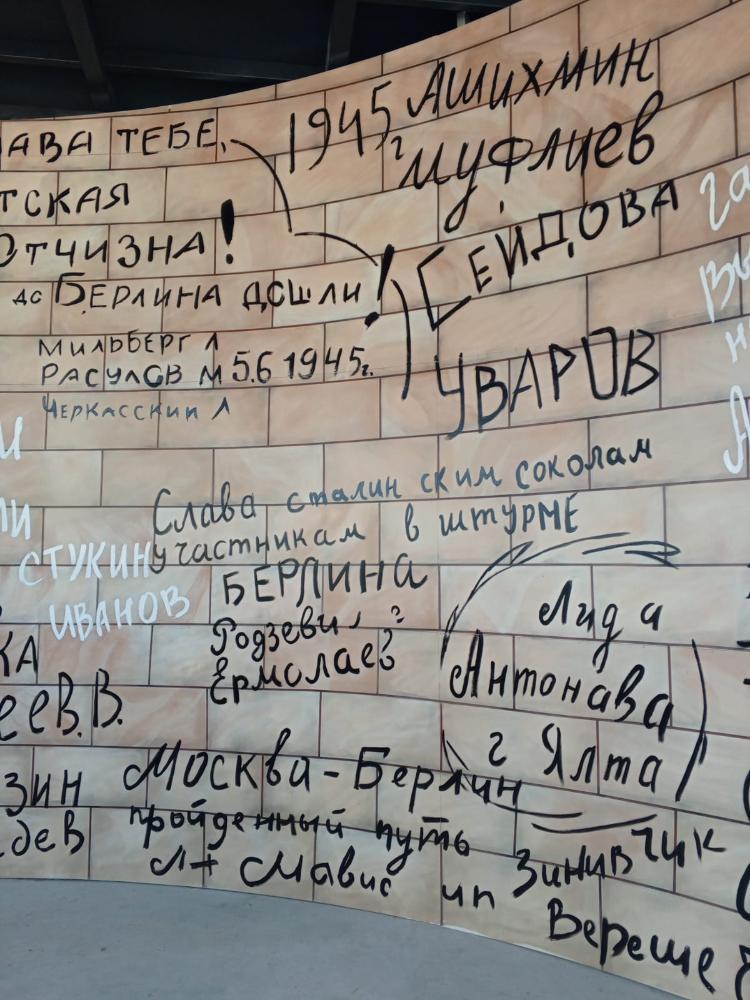 АВА ТЕБЕ,
ТСКАЯ
ОТЧИЗНА!
ДО БЕРЛИНА ДОШЛИ!
МИЛЬБЕРГ Л
РАСУЛОВ М 5.6 1945г.
ЧЕРКАССКИЙ Л
1945 АШИХМИН
г МУФЛИЕВ
СЕИДОВА
УВАРОВ
Слава сталинским соколам
участникам в штурме
БЕРЛИНА
Ермолаев
СТУКИН
ИВАНОВ
Лида
Антонава
г Ялта
КА
ЕЕВ.В.
ЗИН
Москва-Берлин
пройденный путь
Л-т Мавис
ип Зинивчик
Вереще